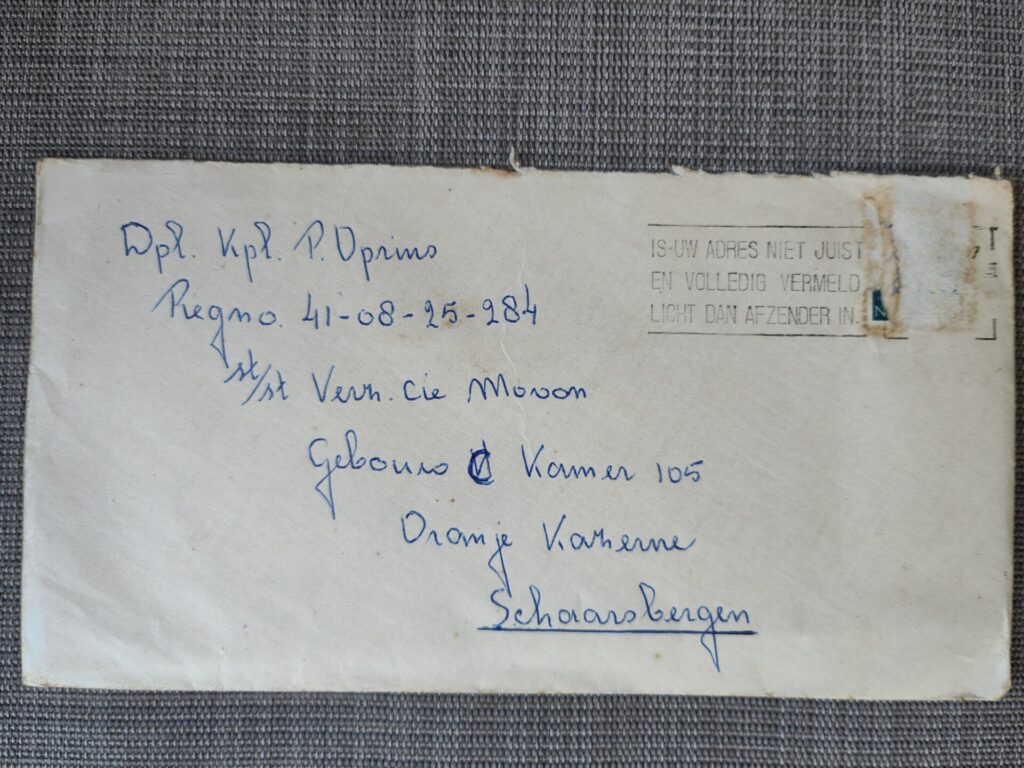 Dpl. Kpl. P. Oprins
Regno. 41-08-25-284
st/st Verz. Cie Movon
Gebouw C Kamer 105
Oranje Kazerne
Schaarsbergen
IS UW ADRES NIET JUIST
EN VOLLEDIG VERMELD
LICHT DAN AFZENDER IN.
N